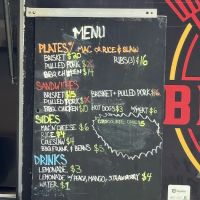 MENU
PLATES / MAC OR RICE & SLAW
BRISKET $20 RIBS(3) $16
PULLED PORK
BBQ CHICKEN $14
SANDWICHES
BRISKET $15 BRISKET + PULLED PORK $16
PULLED PORK
BBQ CHICKEN HOT DOGS $3
SIDES DESSERT $6
MAC N' CHEESE $6
RICE $4
COLESLAW $4
BBQ FRANK & BEANS $5
DRINKS
LEMONADE $3
LEMONADE W/ PEACH, MANGO, STRAWBERRY $4
WATER $1
B